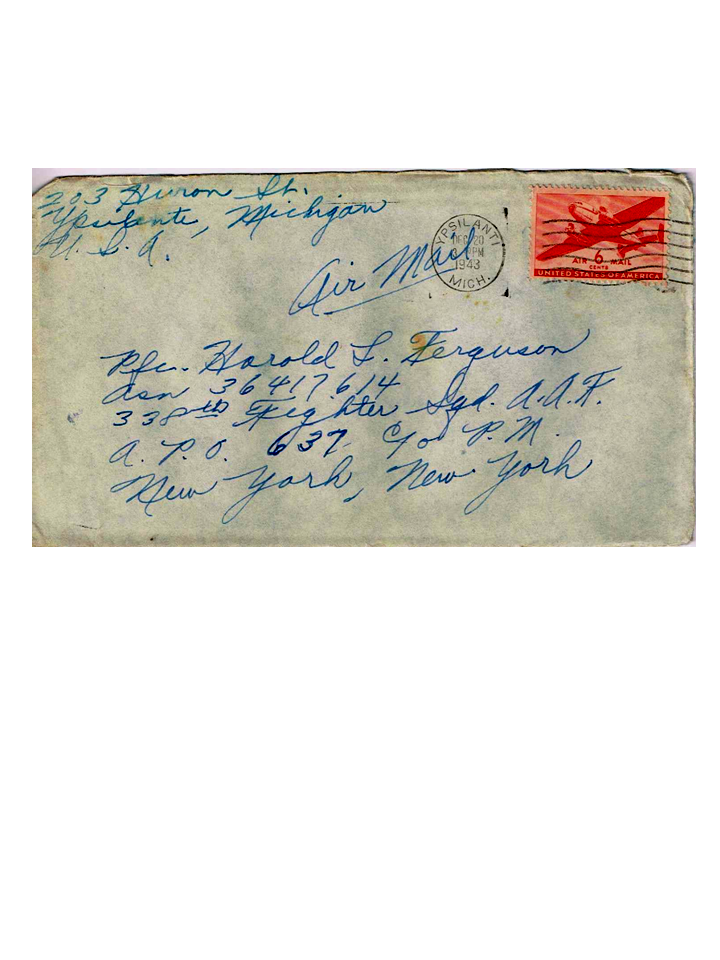 203 Huron St.
Ypsilanti, Michigan
U. S. A.
Air Mail
YPSILANTI
DEC 20
PM
1943
MICH.
AIR 6 MAIL
CENTS
UNITED STATES OF AMERICA
Pfc. Harold L. Ferguson
asn 36417614
338th Fighter Sqd. A.A.F.
A. P. O. 637 c/o P. M.
New York, New York